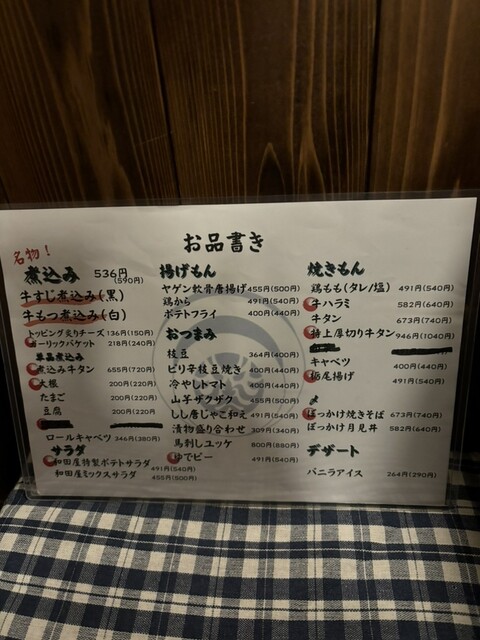 お品書き
名物！
煮込み 536円(590円)
牛すじ煮込み(黒)
牛もつ煮込み(白)
トッピング炙りチーズ 136円(150円)
ガーリックバケット 218円(240円)
単品煮込み
煮込み牛タン 655円(720円)
大根 200円(220円)
たまご 200円(220円)
豆腐 200円(220円)
ロールキャベツ 346円(380円)
サラダ
和田屋特製ポテトサラダ 491円(540円)
和田屋ミックスサラダ 455円(500円)
揚げもん
ヤゲン軟骨唐揚げ 455円(500円)
鶏から 491円(540円)
ポテトフライ 400円(440円)
おつまみ
枝豆 364円(400円)
ピリ辛枝豆焼き 400円(440円)
冷やしトマト 400円(440円)
山芋ザクザク 455円(500円)
しし唐じゃこ和え 491円(540円)
漬物盛り合わせ 309円(340円)
馬刺しユッケ 800円(880円)
ゆでピー 491円(540円)
焼きもん
鶏もも(タレ/塩) 491円(540円)
牛ハラミ 582円(640円)
牛タン 673円(740円)
特上厚切り牛タン 946円(1040円)
キャベツ 400円(440円)
栃尾揚げ 491円(540円)
〆
ぼっかけ焼きそば 673円(740円)
ぼっかけ月見丼 582円(640円)
デザート
バニラアイス 264円(290円)